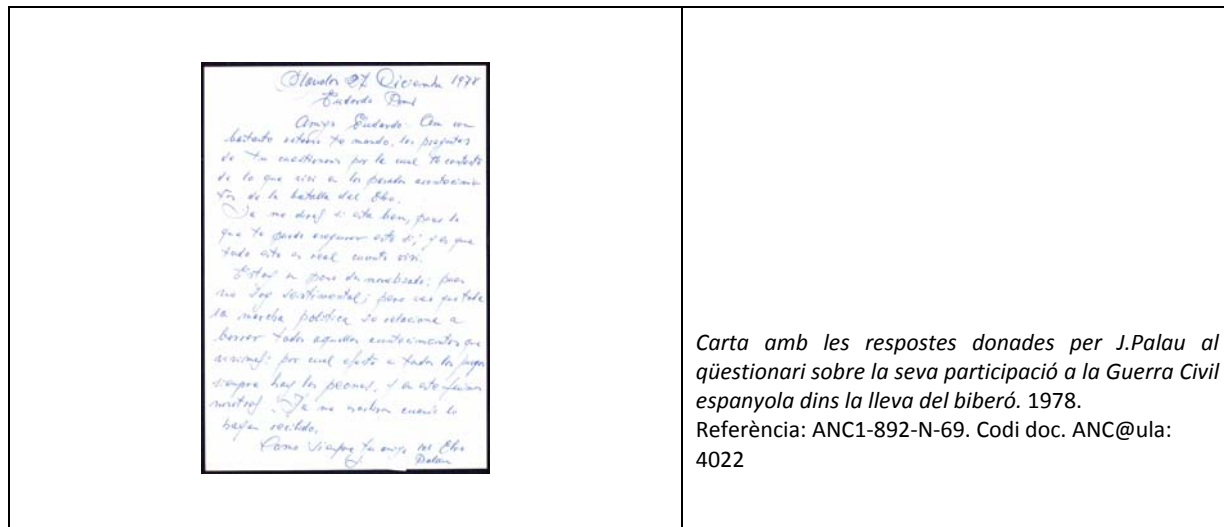 27 Diciembre 1978
Amigo Eduardo: Con un
te mando, las preguntas
de tu cuestionario por la cual te contesto
de lo que viví en los pasados acontecimien
tos de la batalla del Ebro.
Ya me si esta bien, pues lo
que te puedo asegurar esto si; y es que
todo esto es real cuanto viví.
Estoy un poco desmoralizado; pues
soy sentimental; pero veo que toda
la marcha política se relaciona a
borrar todos aquellos acontecimientos que
por cual efecto a todos los juegos
siempre hay los peones, y en este
Ya me cuando lo
hayas recibido.
Como siempre tu amigo del Ebro
J. Palau
Carta amb les respostes donades per J.Palau al
qüestionari sobre la seva participació a la Guerra Civil
espanyola dins la lleva del biberó. 1978.
Referència: ANC1-892-N-69. Codi doc. ANC@ula:
4022